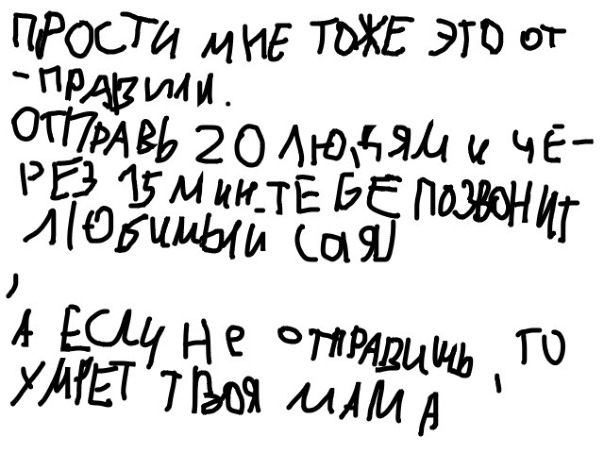 ПРОСТИ МНЕ ТОЖЕ ЭТО ОТ
-ПРАВИЛИ.
ОТПРАВЬ 20 ЛЮДЯМ И ЧЕ-
РЕЗ 15 МИН. ТЕБЕ ПОЗВОНИТ
ЛЮБИМЫЙ (ая)
,
А ЕСЛИ Не ОТПРАВИШЬ, ТО
УМРЕТ ТВОЯ МАМА